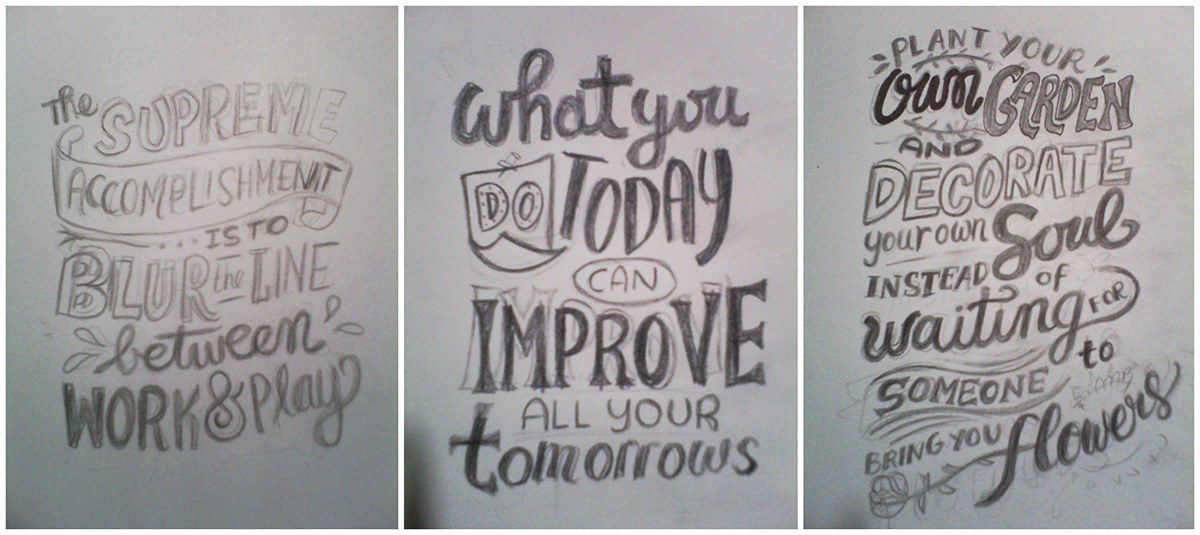 The
SUPREME
ACCOMPLISHMENT
...IS TO
BLUR the LINE
between
WORK & Play
what you
DO TODAY
CAN
IMPROVE
ALL YOUR
tomorrows
PLANT YOUR
own GARDEN
AND
DECORATE
your own Soul
INSTEAD OF
waiting FOR
SOMEONE to
BRING YOU
flowers